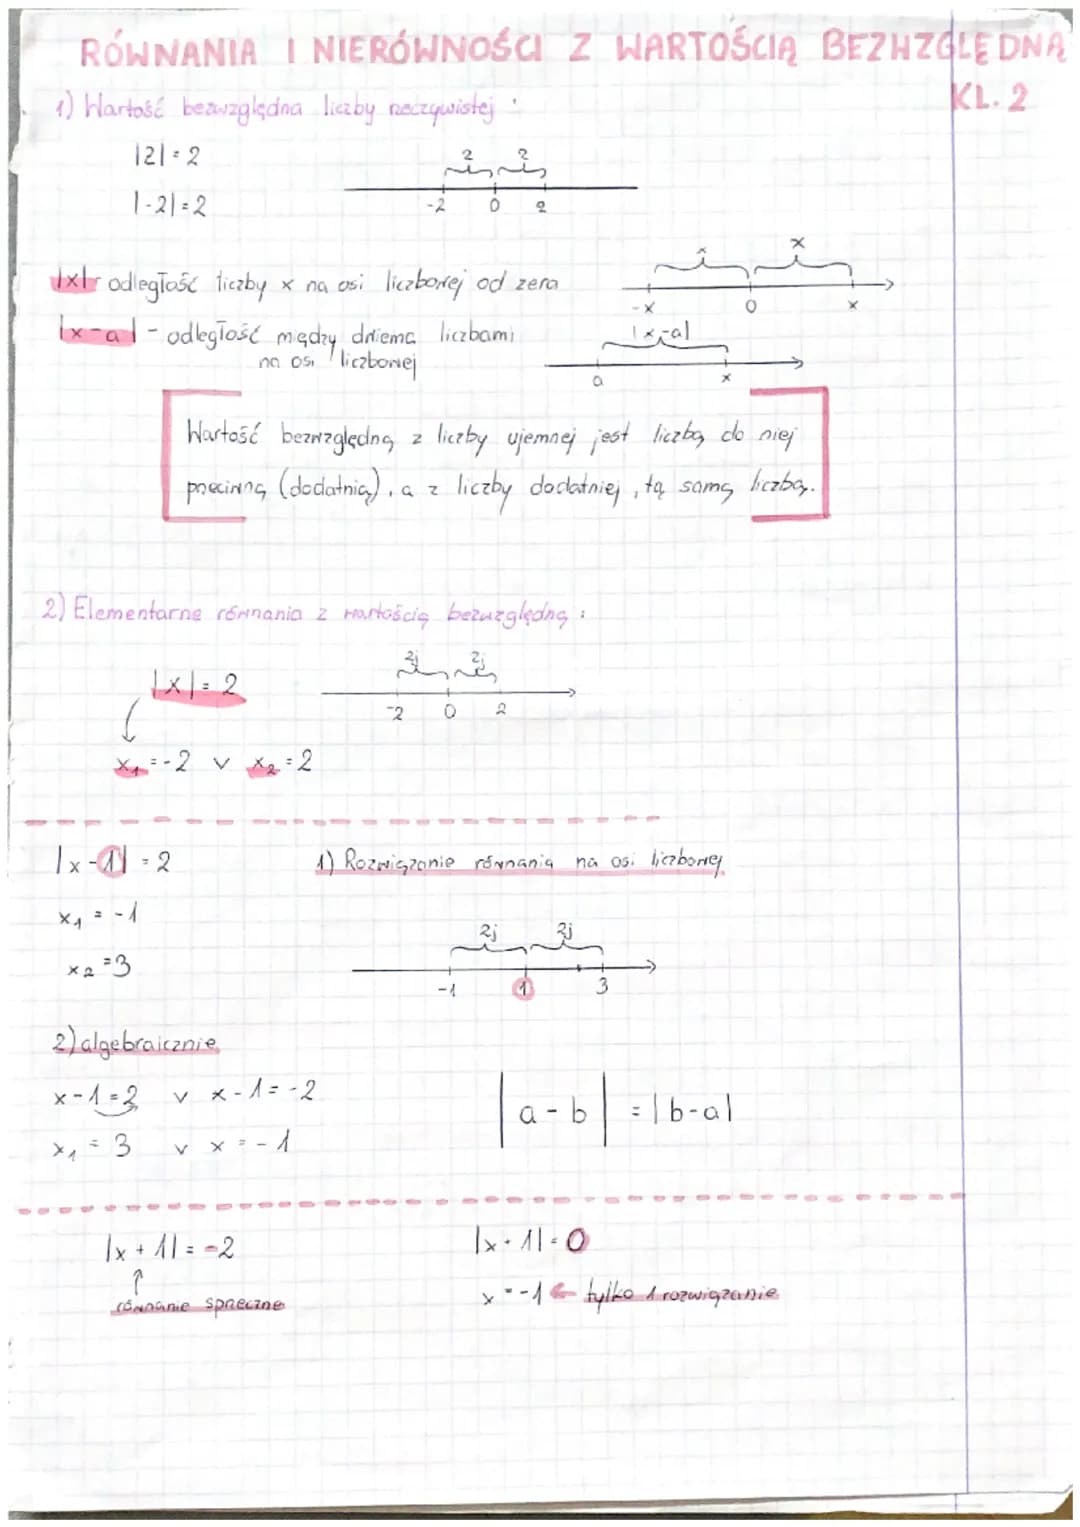 RÓWNANIA I NIERÓWNOŚCI Z WARTOŚCIĄ BEZWZGLĘDNĄ
KL. 2
1) Wartość bezwzględna liczby rzeczywistej :
|2| = 2
2 2
-2 0 2
|-2| = 2
|x| - odległość liczby x na osi liczbowej od zera
x x
-x 0 x
|x-a| - odległość między dwiema liczbami
na osi liczbowej
|x-a|
a x
Wartość bezwzględną z liczby ujemnej jest liczbą do niej
przeciwną (dodatnią), a z liczby dodatniej, tą samą liczbą.
2) Elementarne równania z wartością bezwzględną :
|x| = 2
2j 2j
-2 0 2
x₁ = -2 ∨ x₂ = 2
|x-1| = 2
1) Rozwiązanie równania na osi liczbowej
x₁ = -1
x₂ = 3
2j 2j
-1 1 3
2) algebraicznie
x-1=2 ∨ x-1=-2
|a-b| = |b-a|
x₁ = 3 ∨ x = -1
|x+1| = -2
|x+1| = 0
równanie sprzeczne
x = -1 ← tylko 1 rozwiązanie